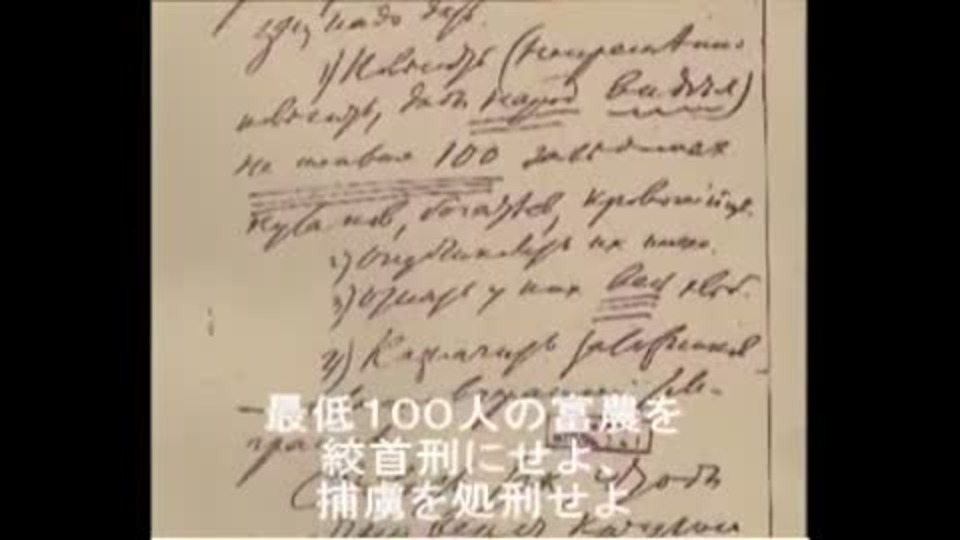 надо дать.
1) Повесить (непременно
повесить, дабы народ видел)
не меньше 100 заведомых
кулаков, богатеев, кровопийц.
2) Опубликовать их имена.
3) Отнять у них весь хлеб.
4) Назначить заложников
最低100人の富農を
絞首刑にせよ、
捕虜を処刑せよ